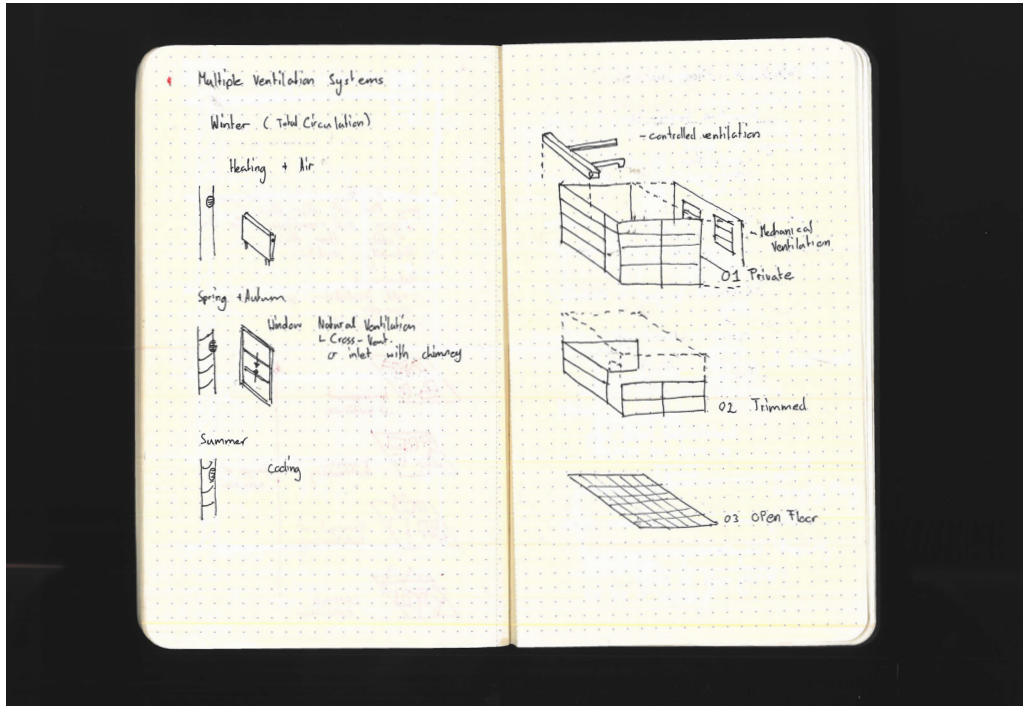 Multiple Ventilation Systems
Winter (Total Circulation)
Heating + Air
Spring + Autumn
Window Natural Ventilation
↳ Cross-Vent.
or inlet with chimney
Summer
Cooling
- controlled ventilation
- Mechanical
Ventilation
01 Private
02 Trimmed
03 Open Floor